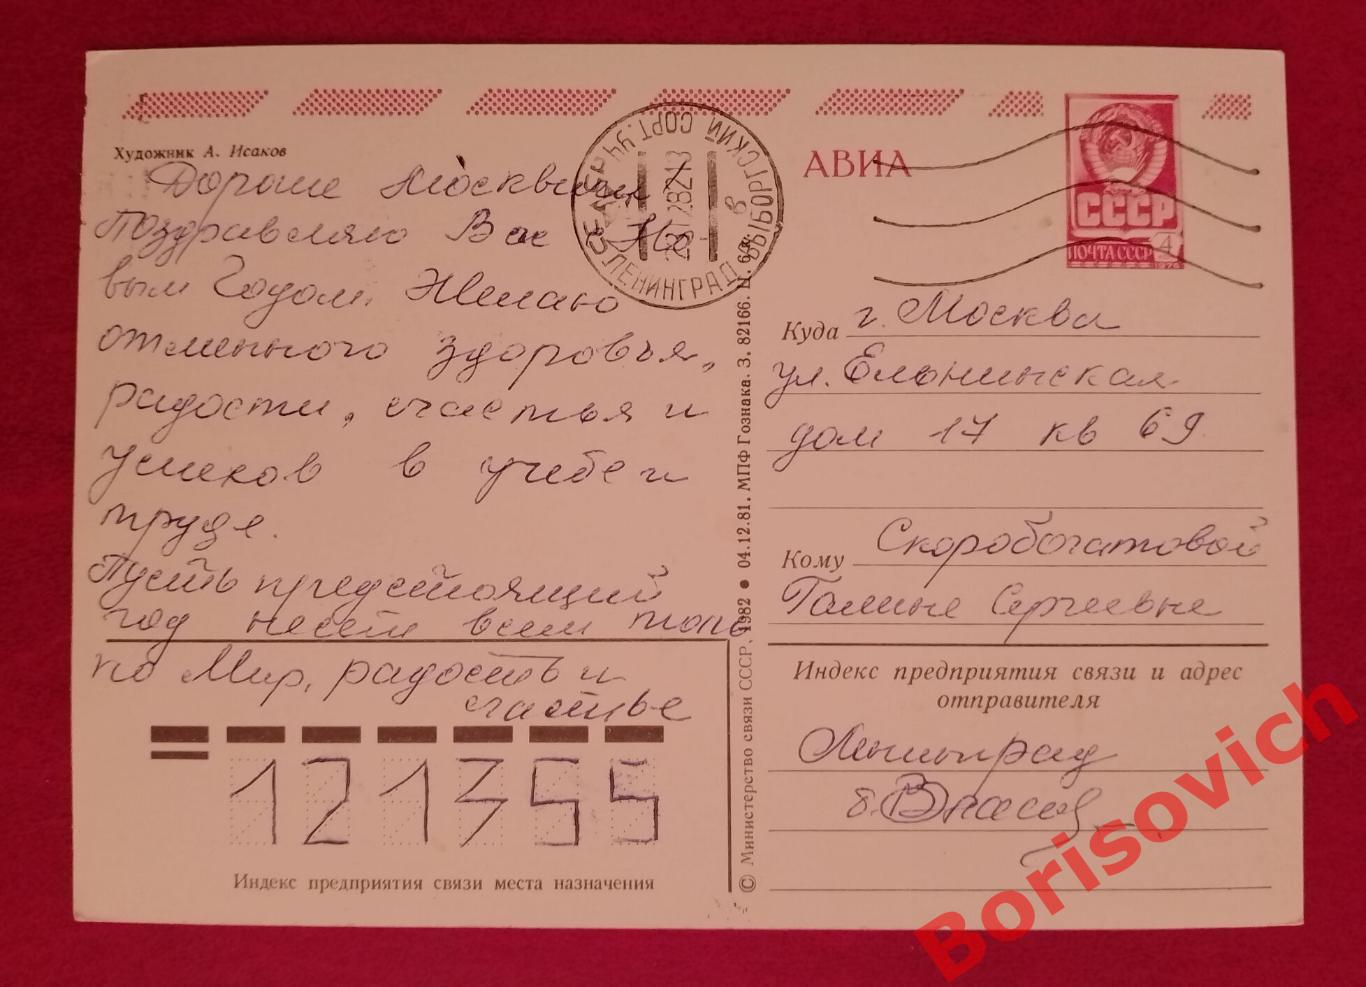 Художник А. Исаков
АВИА
СССР
ПОЧТА СССР 4
1976
ЛЕНИНГРАД
ВЫБОРГСКИЙ СОРТ. УЧ
в
Дорогие Москвичи!
Поздравляю Вас Но-
вым Годом. Желаю
отменного здоровья,
радости, счастья и
успехов в учебе и
труде.
Пусть предстоящий
год несет всем только
Мир, радость и
счастье
Куда г. Москва
ул.
дом 17 кв 69
Кому Скоробогатовой
Галине Сергеевне
Индекс предприятия связи и адрес
отправителя
Ленинград
121355
Индекс предприятия связи места назначения
© Министерство связи СССР, 1982 ● 04.12.81. МПФ Гознака. З. 82166. Ц. 6 к.
Borisovich